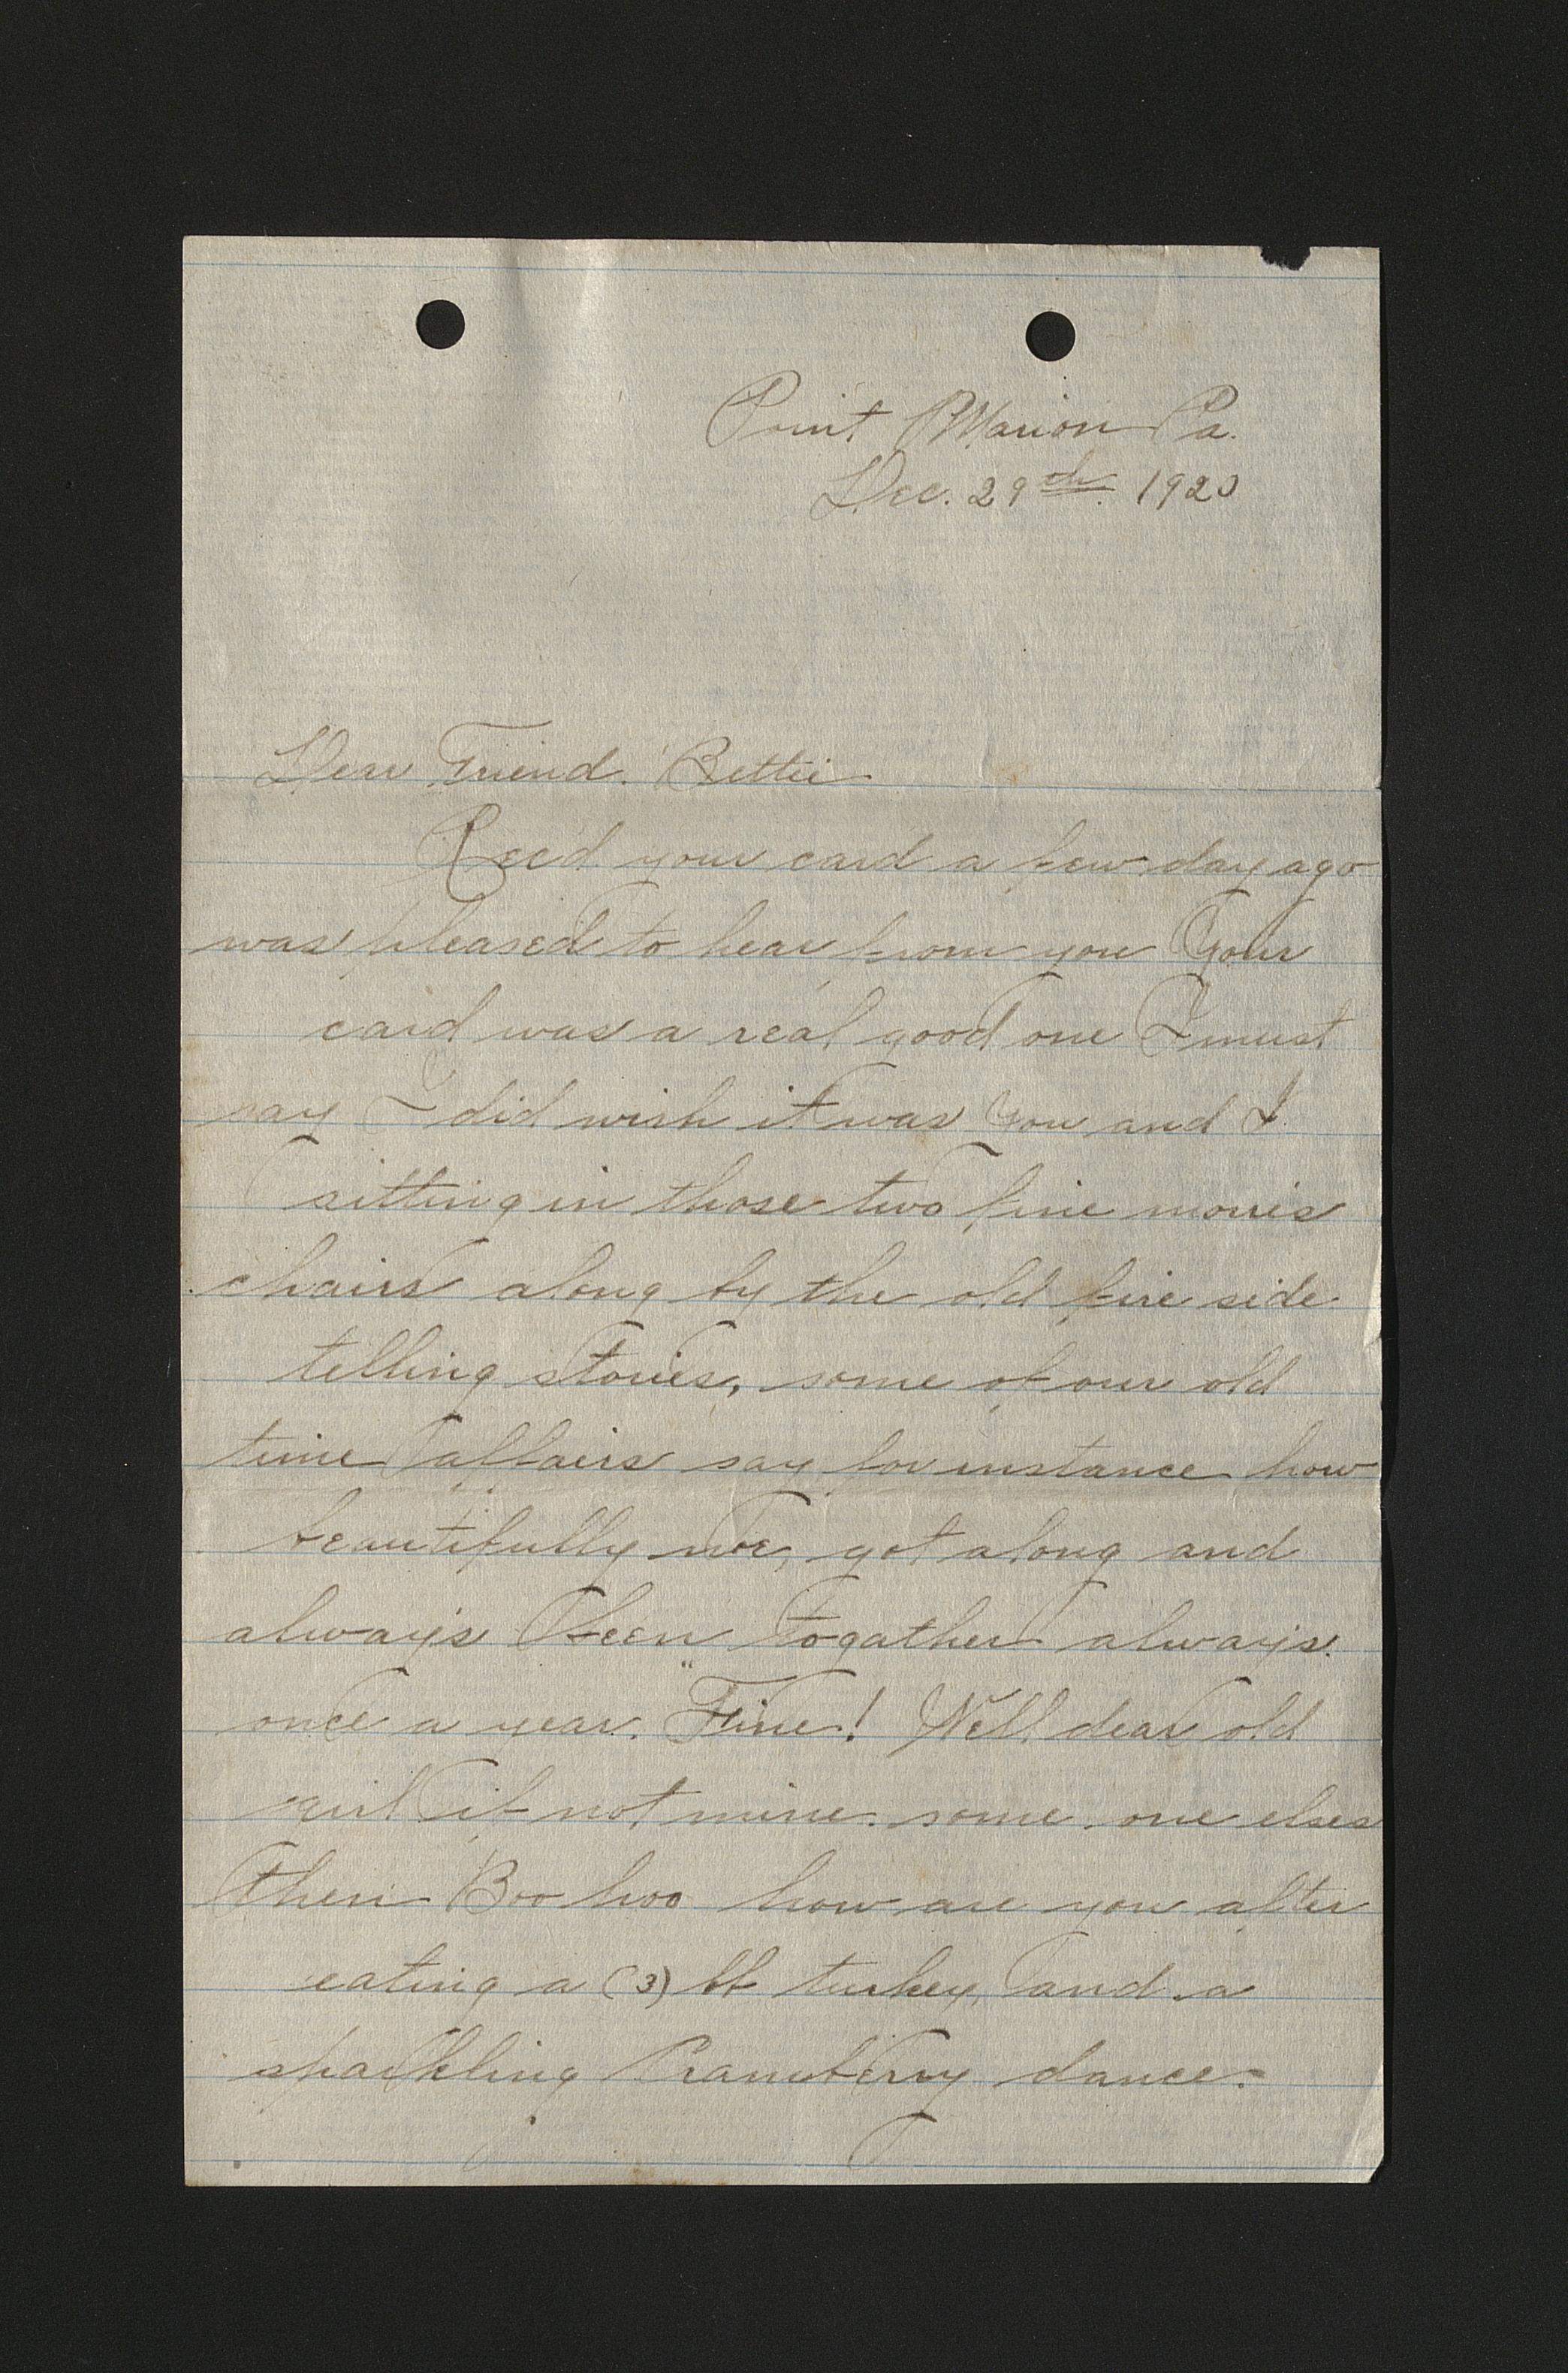 Point Marion Pa.
Dec. 29th. 1920
Dear Friend. Bettie
Recd your card a few day ago
was pleased to hear from you Your
card was a real good one I must
say I did wish it was you and I
sitting in those two fine morris
chairs along by the old fire side
telling stories, some of our old
time affairs say for instance how
beautifully we, got along and
always been togather always.
once a year. "Fine! Well dear old
girl if not mine. some one elses
then Boo hoo how are you after
eating a (3) lb turkey, and a
sparkling Cranberry dance.